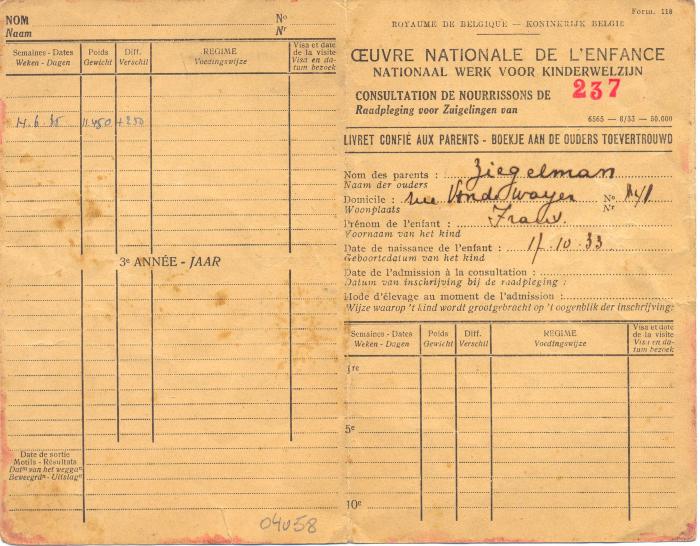 NOM Nº
Naam Nr
Semaines - Dates Poids Diff. REGIME Visa et date de la visite
Weken - Dagen Gewicht Verschil Voedingswijze Visa en datum bezoek
14.6.35 11.450 +250
3e ANNÉE - JAAR
Date de sortie
Motifs - Résultats
Datm van het weggan
Beweegrdn - Uitslagn
04058
Form. 118
ROYAUME DE BELGIQUE — KONINKRIJK BELGIE
ŒUVRE NATIONALE DE L'ENFANCE
NATIONAAL WERK VOOR KINDERWELZIJN
CONSULTATION DE NOURRISSONS DE 237
Raadpleging voor Zuigelingen van
6565 — 8/33 — 50.000
LIVRET CONFIÉ AUX PARENTS - BOEKJE AAN DE OUDERS TOEVERTROUWD
Nom des parents : Ziegelman
Naam der ouders
Domicile : rue Nº
Woonplaats Nr
Prénom de l'enfant :
Voornaam van het kind
Date de naissance de l'enfant : 10.33
Geboortedatum van het kind
Date de l'admission à la consultation :
Datum van inschrijving bij de raadpleging :
Mode d'élevage au moment de l'admission :
Wijze waarop 't kind wordt grootgebracht op 't oogenblik der inschrijving:
Semaines - Dates Poids Diff. REGIME Visa et date de la visite
Weken - Dagen Gewicht Verschil Voedingswijze Visa en datum bezoek
1re
5e
10e